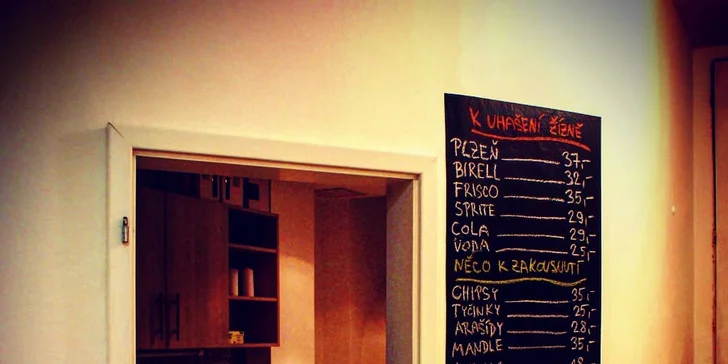 K UHAŠENÍ ŽÍZNĚ
PLZEŇ 37,-
BIRELL 32,-
FRISCO 35,-
SPRITE 29,-
COLA 29,-
VODA 25,-
NĚCO K ZAKOUSNUTÍ
CHIPSY 35,-
TYČINKY 25,-
ARAŠÍDY 28,-
MANDLE 35,-